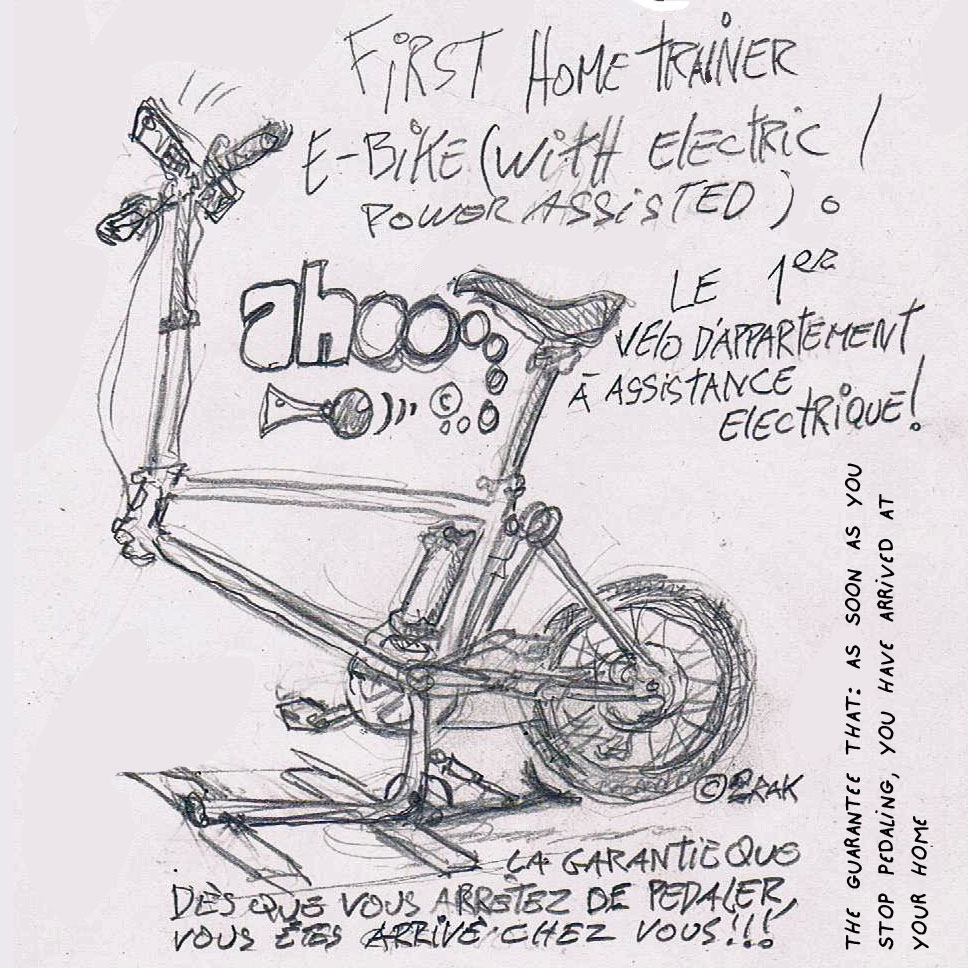 FiRST HOME TRAiNER
E-BiKE (WiTH ElECTRiC /
POWER ASSiSTED) .
ahooo
LE 1ER
VElO D'APPARTEMENT
À ASSiSTANCE
ElECTRiQUE!
©
© ERAK
LA GARANTiE QUE
DÈS QUE VOUS ARRÊTEZ DE PEDALER,
VOUS ÊTES ARRiVÉ CHEZ VOUS!!!
THE GUARANTEE THAT: AS SOON AS YOU
STOP PEDALiNG, YOU HAVE ARRiVED AT
YOUR HOME